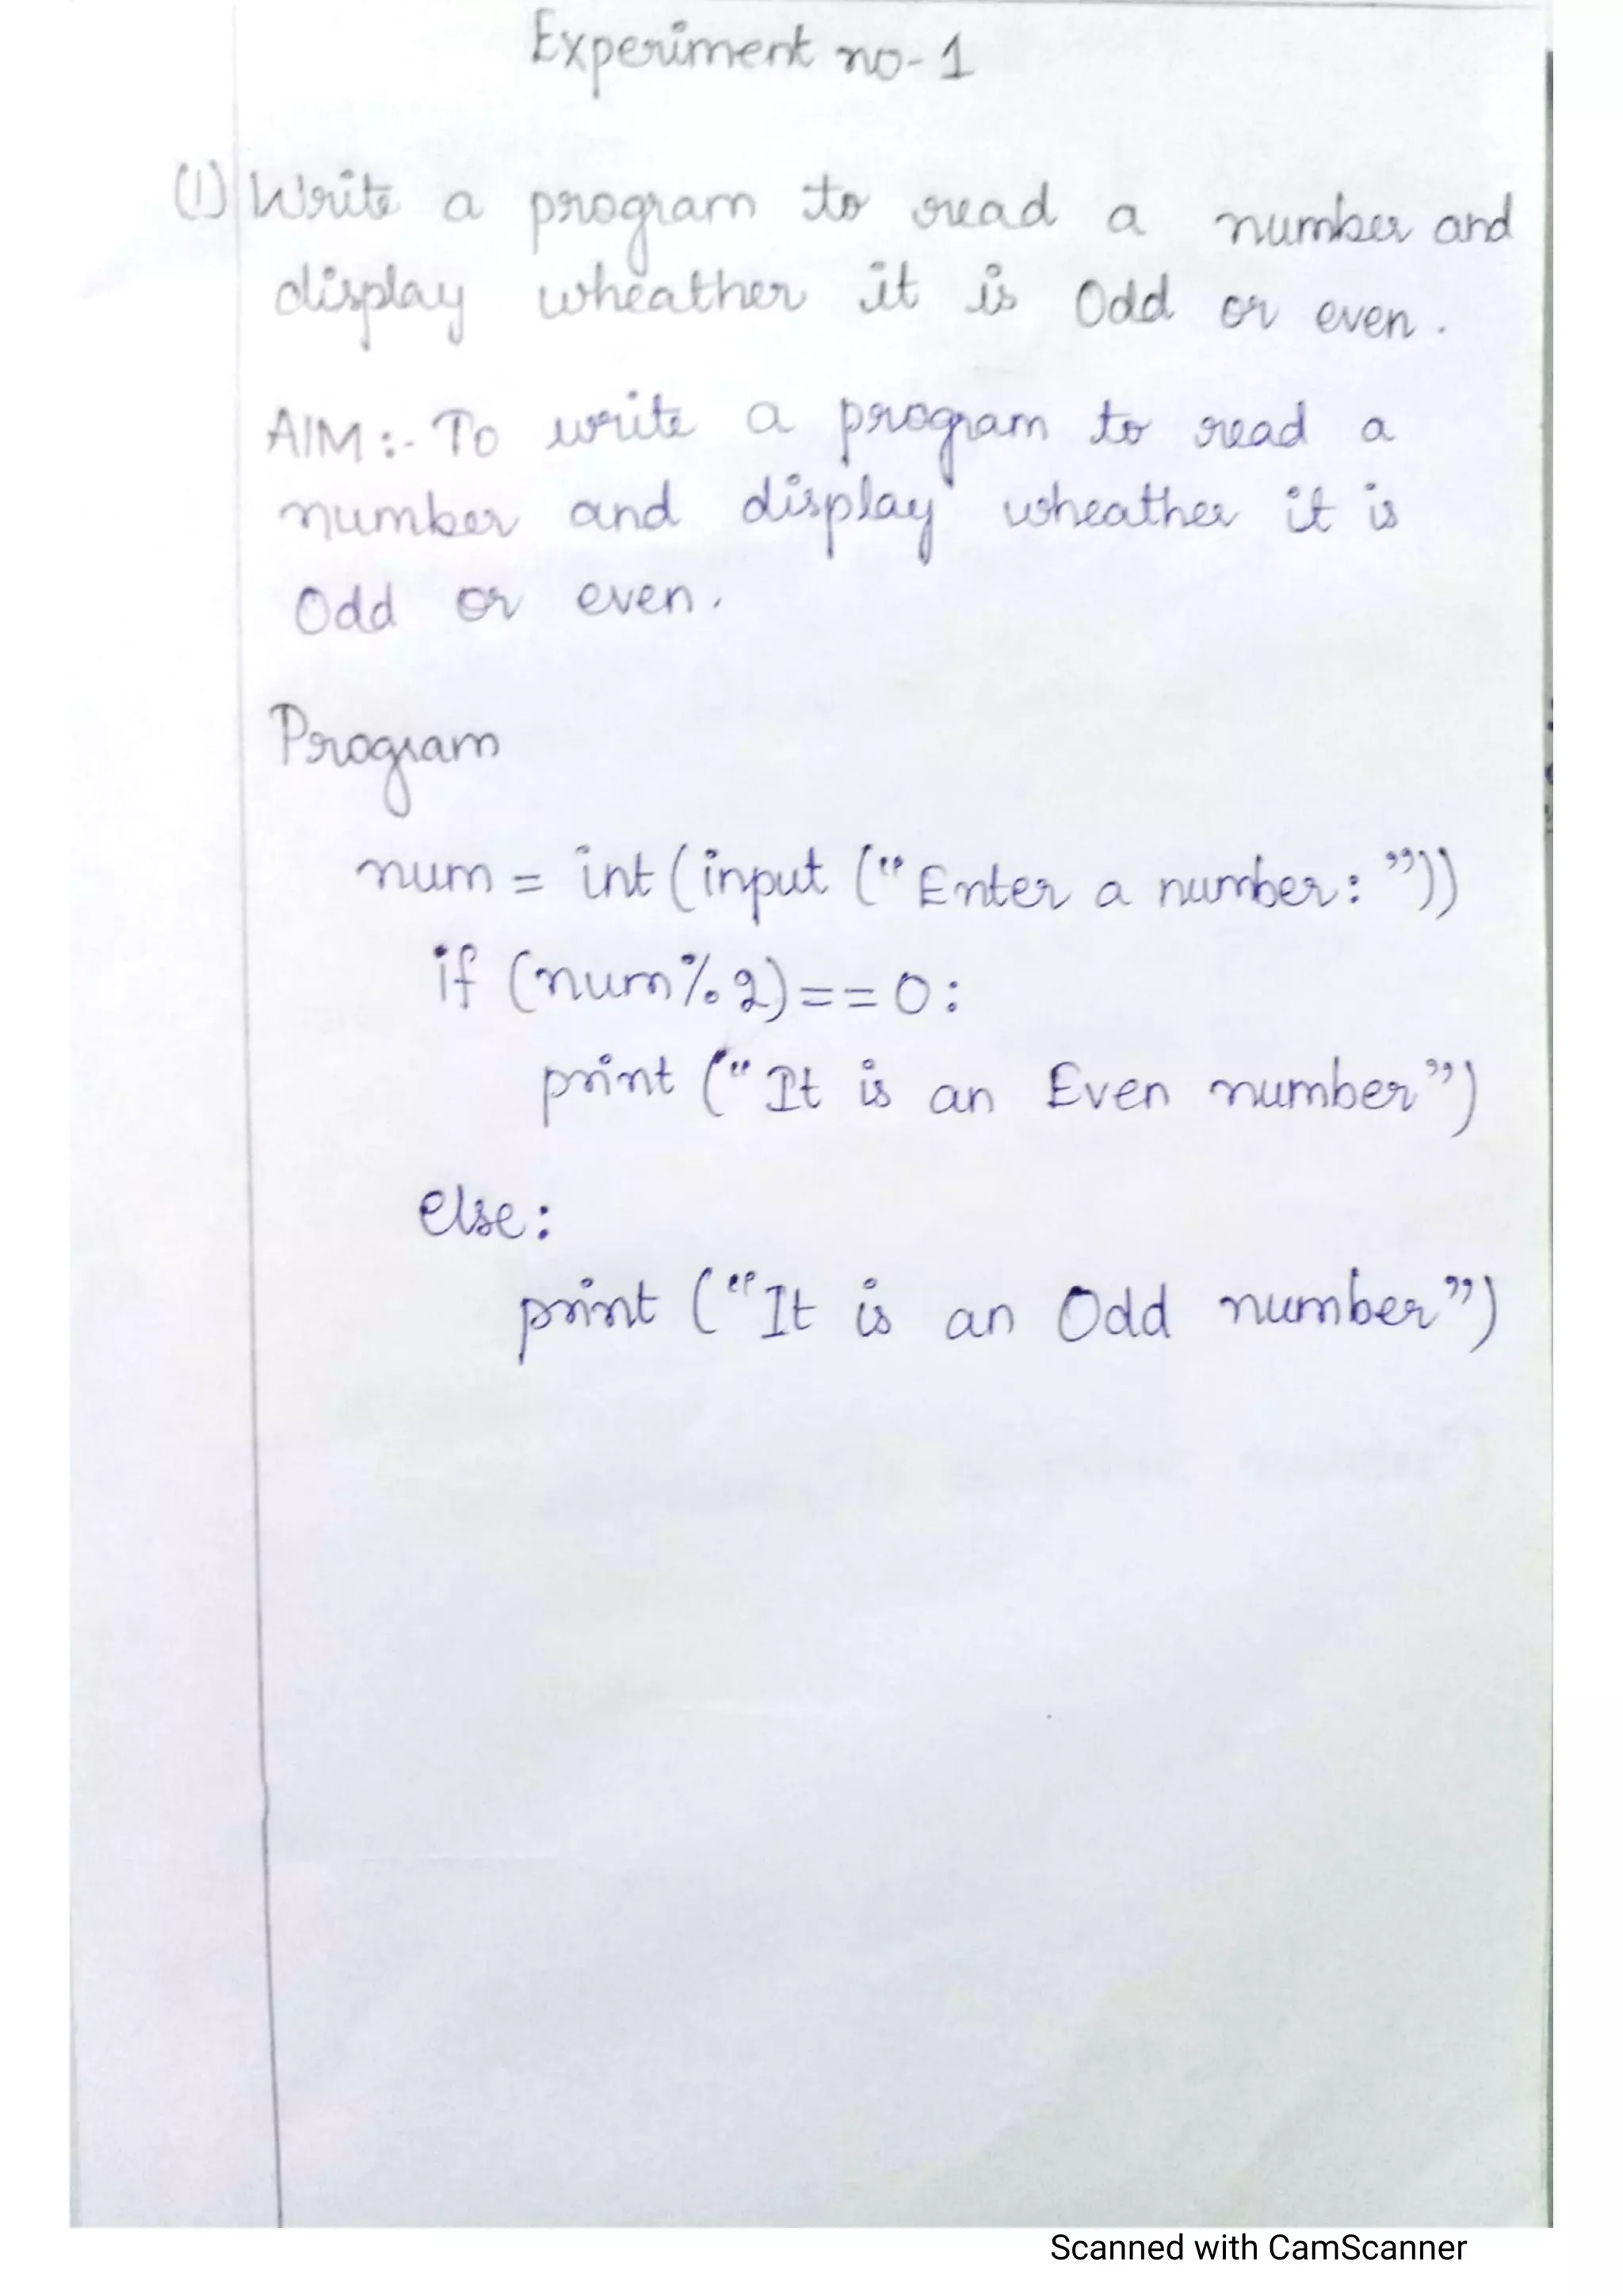 Experiment no-1
(1) Write a program to read a number and
display wheather it is Odd or even.
AIM:- To write a program to read a
number and display wheather it is
Odd or even.
Program
num = int(input ("Enter a number: "))
if (num%2)==0:
print ("It is an Even number")
else:
print ("It is an Odd number")
Scanned with CamScanner